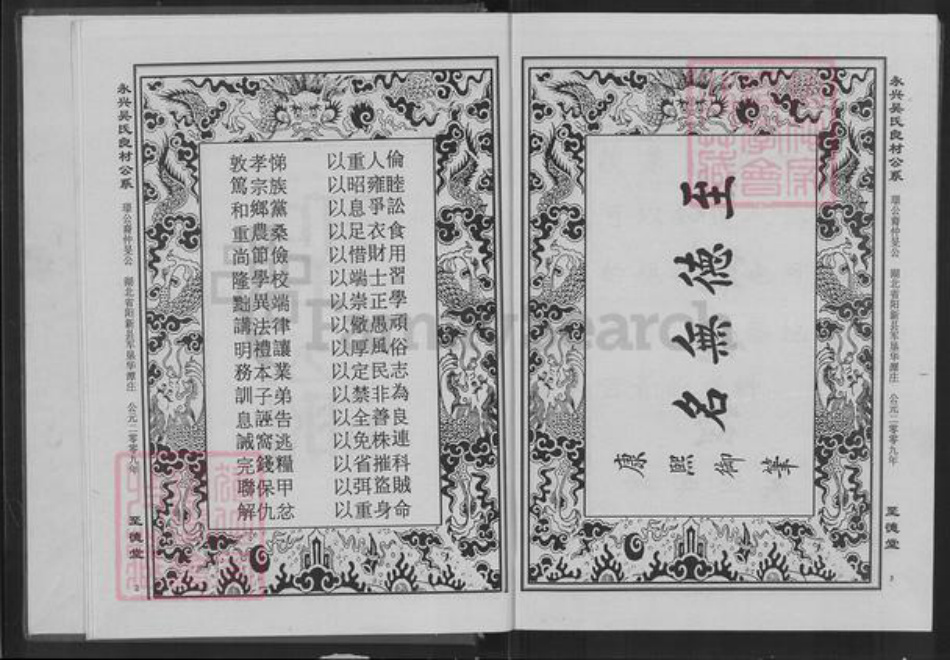 永兴吴氏良村公系
湖北省阳新县军垦华潭庄
公元二零零九年
至德堂
1
至德無名
康熙御筆
敦孝悌 以重人倫
篤宗族 以昭雍睦
和鄉黨 以息爭訟
重農桑 以足衣食
尚節儉 以惜財用
隆學校 以端士習
黜異端 以崇正學
講法律 以儆愚頑
明禮讓 以厚風俗
務本業 以定民志
訓子弟 以禁非為
息誣告 以全善良
誡窩逃 以免株連
完錢糧 以省摧科
聯保甲 以弭盜賊
解仇忿 以重身命
永兴吴氏良村公系
湖北省阳新县军垦华潭庄
公元二零零九年
至德堂
2
FamilySearch